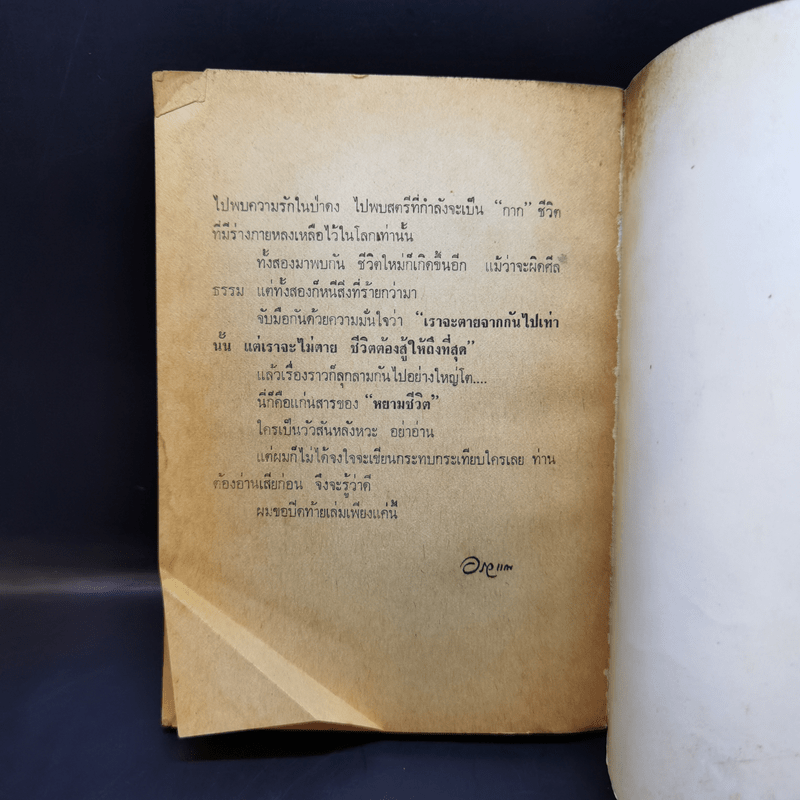 ไปพบความรักในป่าดง ไปพบสตรีที่กำลังจะเป็น “กาก” ชีวิต
ที่มีร่างกายหลงเหลือไว้ในโลกเท่านั้น
ทั้งสองมาพบกัน ชีวิตใหม่ก็เกิดขึ้นอีก แม้ว่าจะผิดศีล
ธรรม แต่ทั้งสองก็หนีสิ่งที่ร้ายกว่ามา
จับมือกันด้วยความมั่นใจว่า “เราจะตายจากกันไปเท่า
นั้น แต่เราจะไม่ตาย ชีวิตต้องสู้ให้ถึงที่สุด”
แล้วเรื่องราวก็ลุกลามกันไปอย่างใหญ่โต....
นี่ก็คือแก่นสารของ “หยามชีวิต”
ใครเป็นวัวสันหลังหวะ อย่าอ่าน
แต่ผมก็ไม่ได้จงใจจะเขียนกระทบกระเทียบใครเลย ท่าน
ต้องอ่านเสียก่อน จึงจะรู้ว่าดี
ผมขอปิดท้ายเล่มเพียงแค่นี้